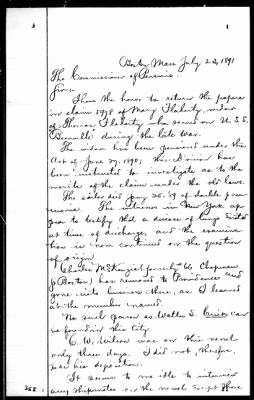 1
Boston Mass July 23, 1891
The Commissioner of Pensions.
Sir:
I have the honor to return the papers
in claim 1998 of Mary Flaherty, widow
of Thomas Flaherty who served on U. S. S.
during the late war.
The widow has been pensioned under the
Act of June 27, 1890; this Division has
been instructed to investigate as to the
merits of the claim under the old laws.
The sailor died Jany 26, '89 of double pneu-
monia. The in New York
to testify that a disease of lungs existed
at time of discharge, and the examina-
tion is now continued on the question
of origin.
Charles McKenzie (formerly 66 Chapman
of Boston) has removed to Providence and
gone into business there, as I learned
at the number named.
No such person as Walter S. can
be found in this City.
C. W. Wilson was on this vessel
only three days. I did not, therefore,
take his deposition.
It seems to me idle to interview
any shipmates on the vessel except those
252